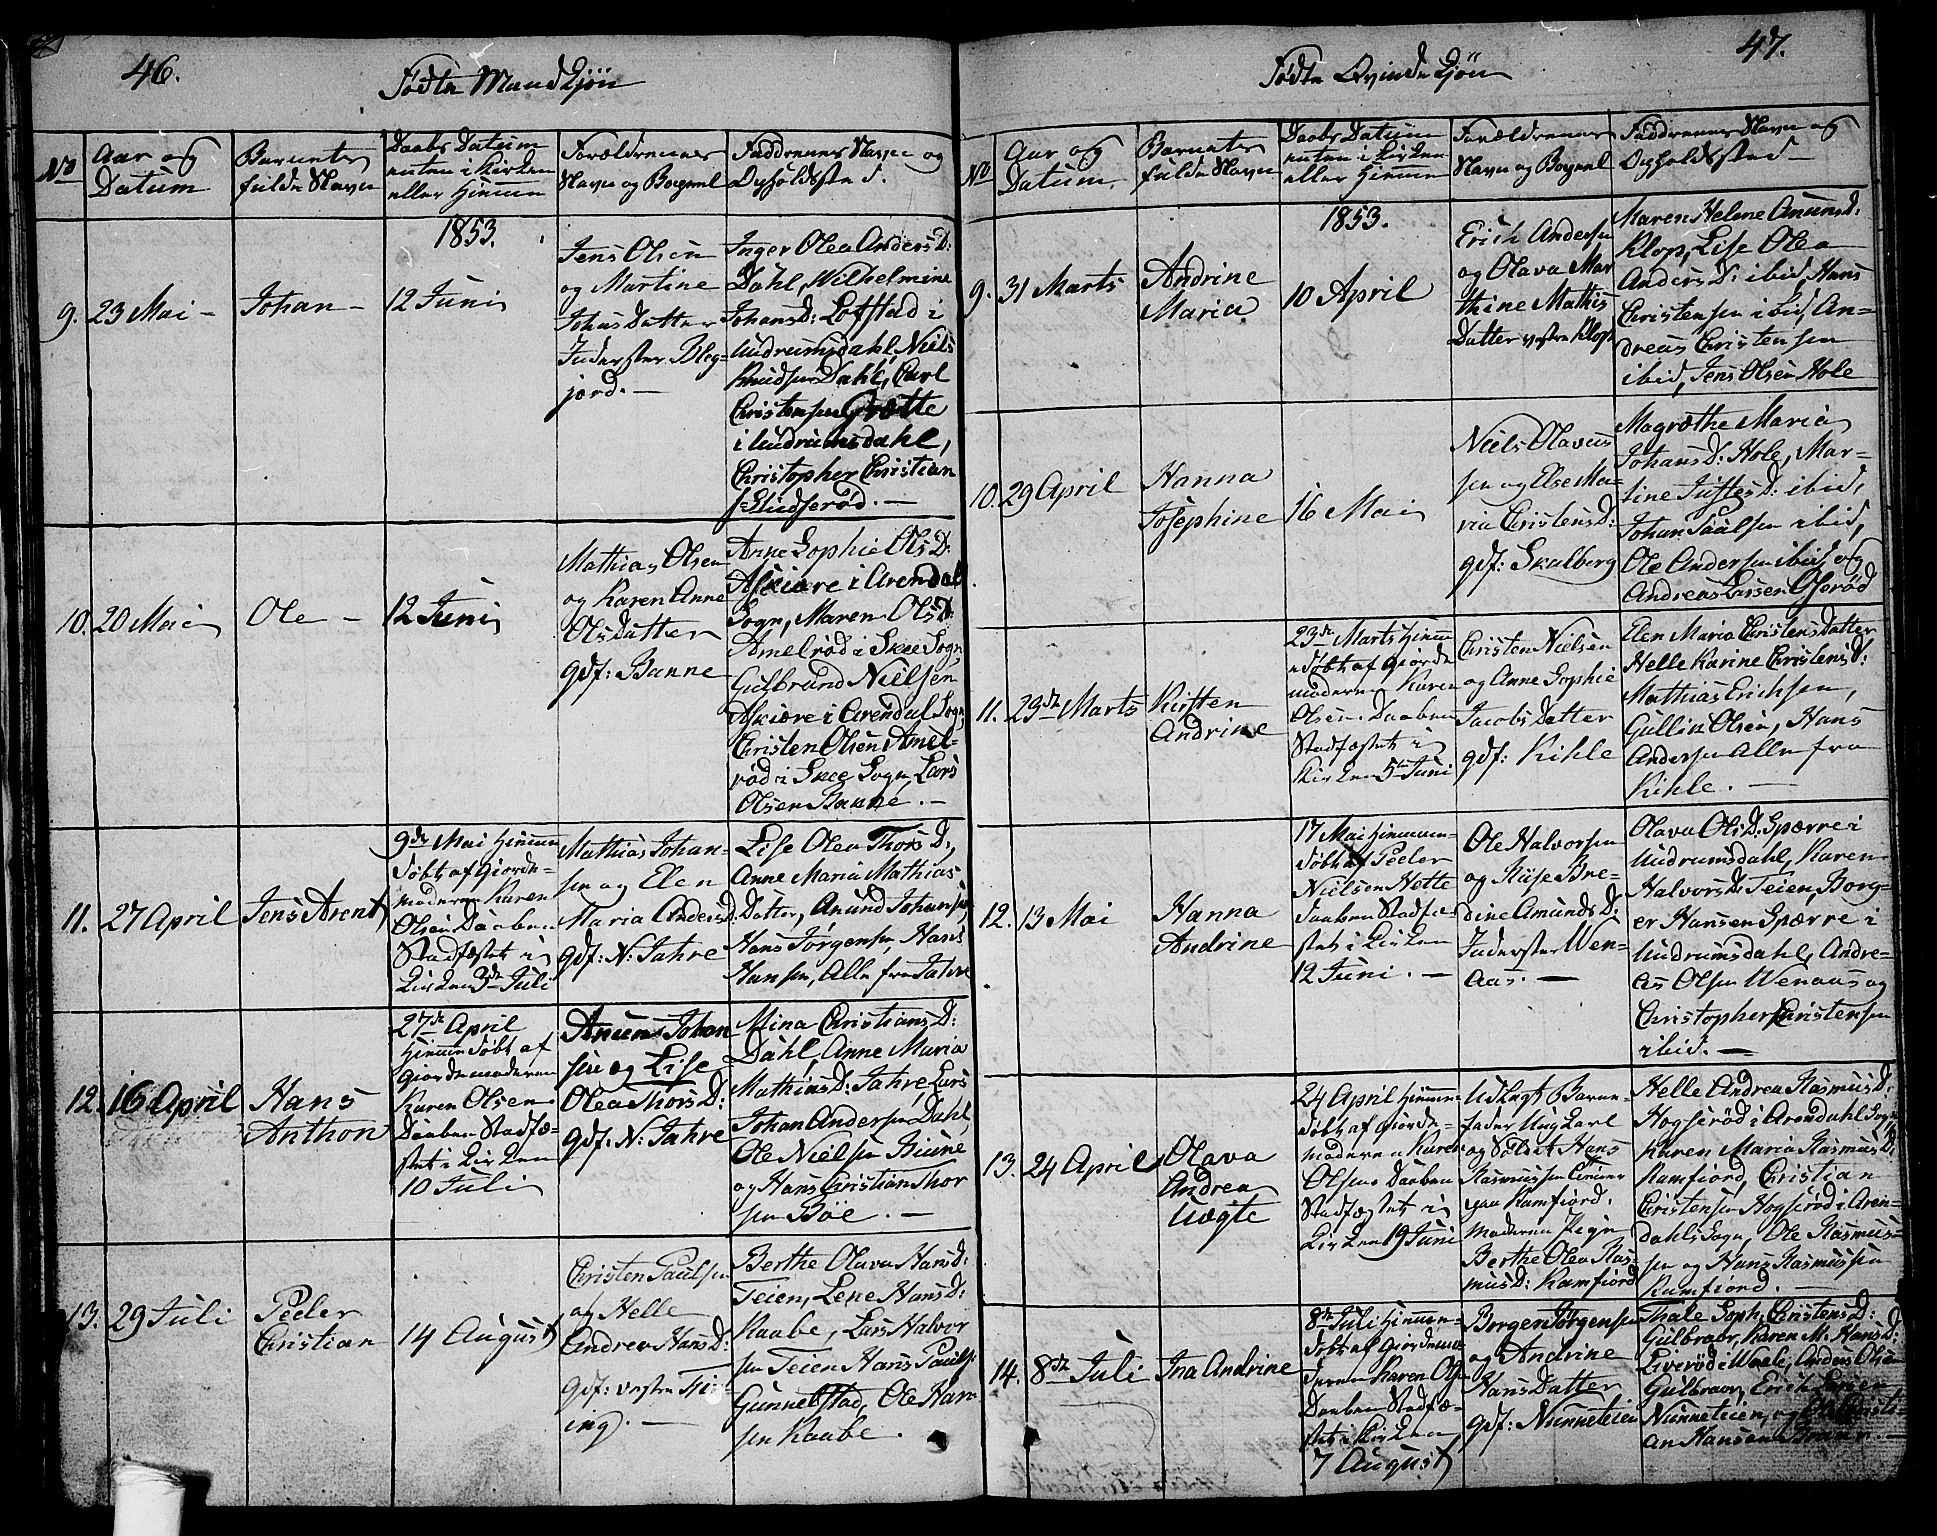 46.
Fødte Mandkjön
No
Aar og
Datum
Barnetes
fulde Navn
Daabs Datum
enten i Kirken
eller Hjemme
Forældrenes
Navn og Boepæl
Faddrenes Navne og
Opholdssted.
1853.
9.
23 Mai –
Johan –
12 Juni
Jens Olsen
og Martine
Johas Datter
Inderster Bleg-
jord. –
Inger Olea Anders D:
Dahl, Wilhelmine
Johans D: Lofstad i
Undrumsdahl, Niels
Knudsen Dahl, Carl
Christensen Grötte
i Undrumsdahl,
Christopher Christian
s: Gudserød. –
10.
20 Mai
Ole –
12 Juni
Mathias Olsen
og Karen Anne
Ols Datter
gdf: Banne
Anne Sophie Ols D:
Askiære i Arendal
Sogn, Maren Ols D:
Amelrød i Skee Sogn,
Gulbrand Nielsen
Askiære i Arendal Sogn,
Christen Olsen Amel-
rød i Skee Sogn, Lars
Olsen Banne. –
11.
27 April
Jens Arent
9de Mai Hjemme
døbt af Giorde-
moderen Karen
Olsen Daaben
Stadfæstet i
Kirken 3de Juli
Mathias Johan-
sen og Elen
Maria Anders D:
gdf: N: Jahre
Lise Olea Thors D:,
Anne Maria Mathias
Datter, Anund Johansen,
Hans Jørgensen, Hans
Hansen, Alle fra Jahre
12.
16 April
Hans
Anthon
27de April
Hjemme døbt af
Giordemoderen
Karen Olsen
Daaben Stadfæ-
stet i Kirken
10 Juli
Anuns Johan
sen og Lise
Olea Thors D:
gdf: N: Jahre
Mina Christians D:
Dahl, Anne Maria
Mathias D: Jahre, Lars
Johan Andersen Dahl,
Ole Nielsen Biune
og Hans Christian Thor
sen Böe. –
13.
29 Juli
Peder
Christian
14 August
Christen Paulsen
og Helle
Andrea Hans D:
gdf: vestre
ing. –
Berthe Olava Hans D:
Teien, Lene Hans D:
Raabe, Lars Halvor
sen Teien Hans Paulse
Gunnestad, Ole Han
sen Raabe.
47.
Fødte Qvindekjön
No
Aar og
Datum
Barnetes
fulde Navn
Daabs Datum
enten i Kirken
eller Hjemme
Forældrenes
Navn og Boepæl
Faddrenes Navn og
Opholdssted –
1853.
9.
31 Marts
Andrine
Maria
10 April
Erich Andersen
og Olava Mar
thine Mathis
Datter vestre Klop
Maren Helene Anuns D:
Klop, Lise Olea
Anders D: ibid Hans
Christensen ibid, An-
dreas Christensen
ibid, Jens Olsen Hole
10.
29 April
Hanna
Josephine
16 Mai
Niels Olavus
sen og Else Ma-
ria Christens D:
gdf: Skalberg
Magrethe Maria
Johans D: Hole, Mar-
tine Juftes D: ibid,
Johan Paalsen ibid,
Ole Andersen ibid og
Andreas Larsen Oserød
11.
23de Marts
Kirsten
Andrine
23de Marts Hjemme
døbt af Giorde
moderen Karen
Olsen. Daaben
Stadfæstet i
Kirken 5te Juni
Christen Nielsen
og Anne Sophie
Jacobs Datter
gdf: Kihle
Elen Maria Christens Datter
Helle Karine Christens D:
Mathias Erichsen,
Gullik Olsen, Hans
Andersen Alle fra
Kihle. –
12.
13 Mai
Hanna
Andrine
17 Mai Hjemme-
døbt af Peder
Nielsen Hette
Daaben Stadfæ-
stet i Kirken
12 Juni. –
Ole Halvorsen
og Risse Bre-
dine Amunds D:
Inderster Wen-
Aas. –
Olava Ols D: Spærre i
Undrumsdahl, Karen
Halvors D: Teien, Borg-
er Hansen Spærre i
Undrumsdahl, Andre-
as Olsen Wenaas og
Christopher Christensen
ibid. –
13.
24 April
Olava
Andrea
Uægte
24 April Hjemme-
døbt af Giorde-
moderen Karen
Olsen Daaben
Stadfæstet i
Kirken 19 Juni
Udlagt Barne-
fader Ung Karl
og Soldat Hans
Rasmussen
paa Ramfiord.
moderen Pigen
Berthe Olea Ras-
mus D: Ramfiord
Helle Andrea Rasmus D:
Hogserød i Arendahl Sogn
Karen Maria Rasmus D:
Ramfiord, Christian
Christensen Hogserød i Aren-
dahls Sogn, Ole Rasmus-
sen og Hans Rasmussen
Ramfiord. –
14.
8de Juli
Ina Andrine
8de Juli Hjemme-
døbt af Giordemo-
deren Karen Olsen
Daaben Stadfæ-
stet i Kirken
7 August
Borgen Jörgensen
og Andrine
Hans Datter
gdf: Nunneteien
Thale Soph. Christens D:
Gulbraar, Karen M. Hans D:
Liverød i Waale, Anders Olsen
Gulbraar, Erich Larsen
Nunneteien, og
an Hansen Bruun. –